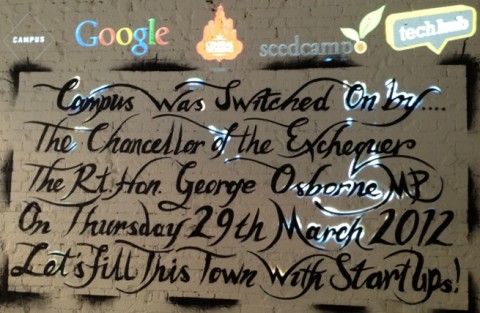 CAMPUS Google seedcamp techhub
Campus Was Switched On by....
The Chancellor of the Exchequer
The R.t. Hon. George Osborne MP
On Thursday 29th March 2012
Let's fill This Town With StartUps!